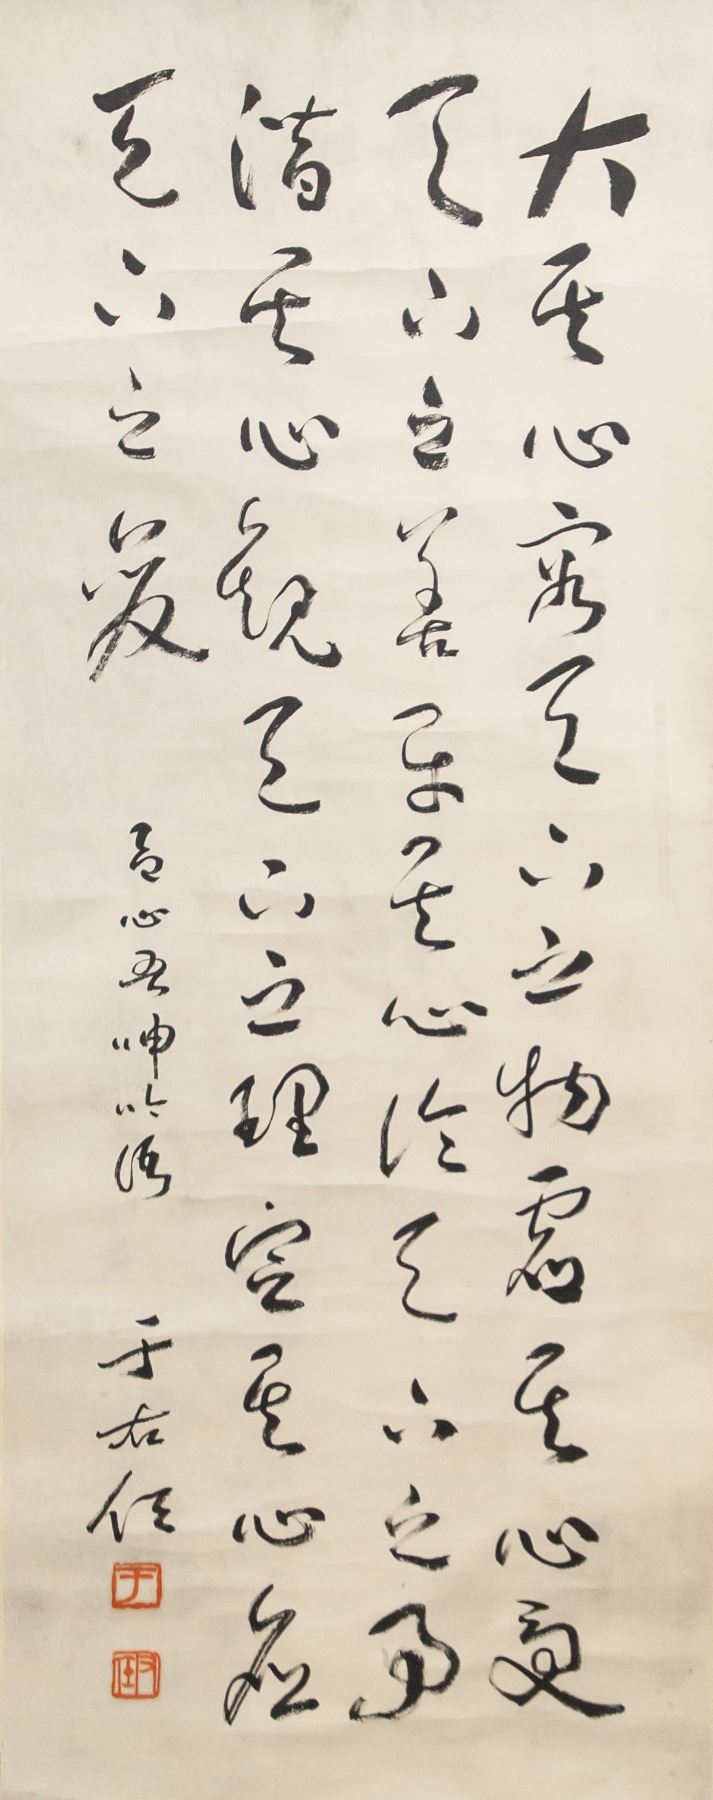 大其心容天下之物虛其心受
天下之善平其心論天下之事
潛其心觀天下之理定其心應
天下之變
呂心吾呻吟語
于右任